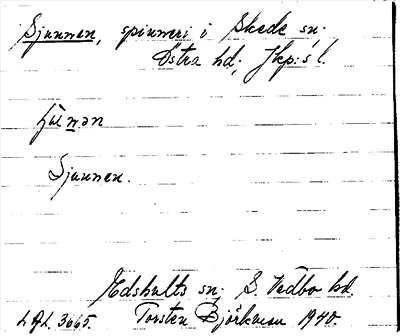 Sjunnen, spinneri i Skede sn.
Östra hd; Jkp:s l.
Sjunnen.
Edshults sn; S. Vedbo hd.
Torsten Björkman 1940.